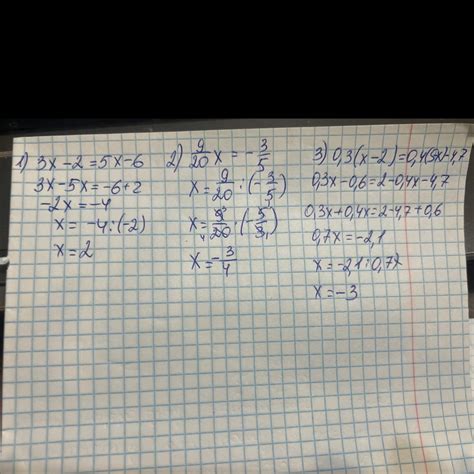 1) 3x-2=5x-6
3x-5x=-6+2
-2x=-4
x=-4:(-2)
x=2
2) 9/20 x = -3/5
x=9/20:(-3/5)
x=9/20·(-5/3)
x=-3/4
3) 0,3(x-2)=0,4(5-x)-4,7
0,3x-0,6=2-0,4x-4,7
0,3x+0,4x=2-4,7+0,6
0,7x=-2,1
x=-2,1:0,7
x=-3